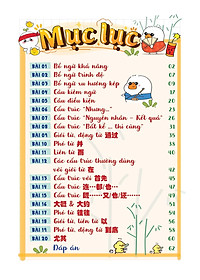 Mục lục
BÀI 01 Bổ ngữ khả năng 02
BÀI 02 Bổ ngữ trình độ 07
BÀI 03 Bổ ngữ xu hướng kép 10
BÀI 04 Câu kiêm ngữ 17
BÀI 05 Câu điều kiện 20
BÀI 06 Cấu trúc "Nhưng..." 23
BÀI 07 Cấu trúc "Nguyên nhân – Kết quả" 26
BÀI 08 Cấu trúc "Bất kể ... thì cũng" 31
BÀI 09 Giới từ, động từ 通过 34
BÀI 10 Phó từ 并 38
BÀI 11 Liên từ 而 40
BÀI 12 Các cấu trúc thường dùng
với giới từ 在 42
BÀI 13 Cấu trúc với 首先 45
BÀI 14 Cấu trúc 连⋯都/也⋯ 47
BÀI 15 Cấu trúc 既⋯⋯又/也/还⋯⋯ 49
BÀI 16 大概 & 大约 51
BÀI 17 Phó từ 往往 53
BÀI 18 Giới từ, liên từ 以 56
BÀI 19 Phó từ, động từ 到底 58
BÀI 20 尤其 60
Đáp án 62